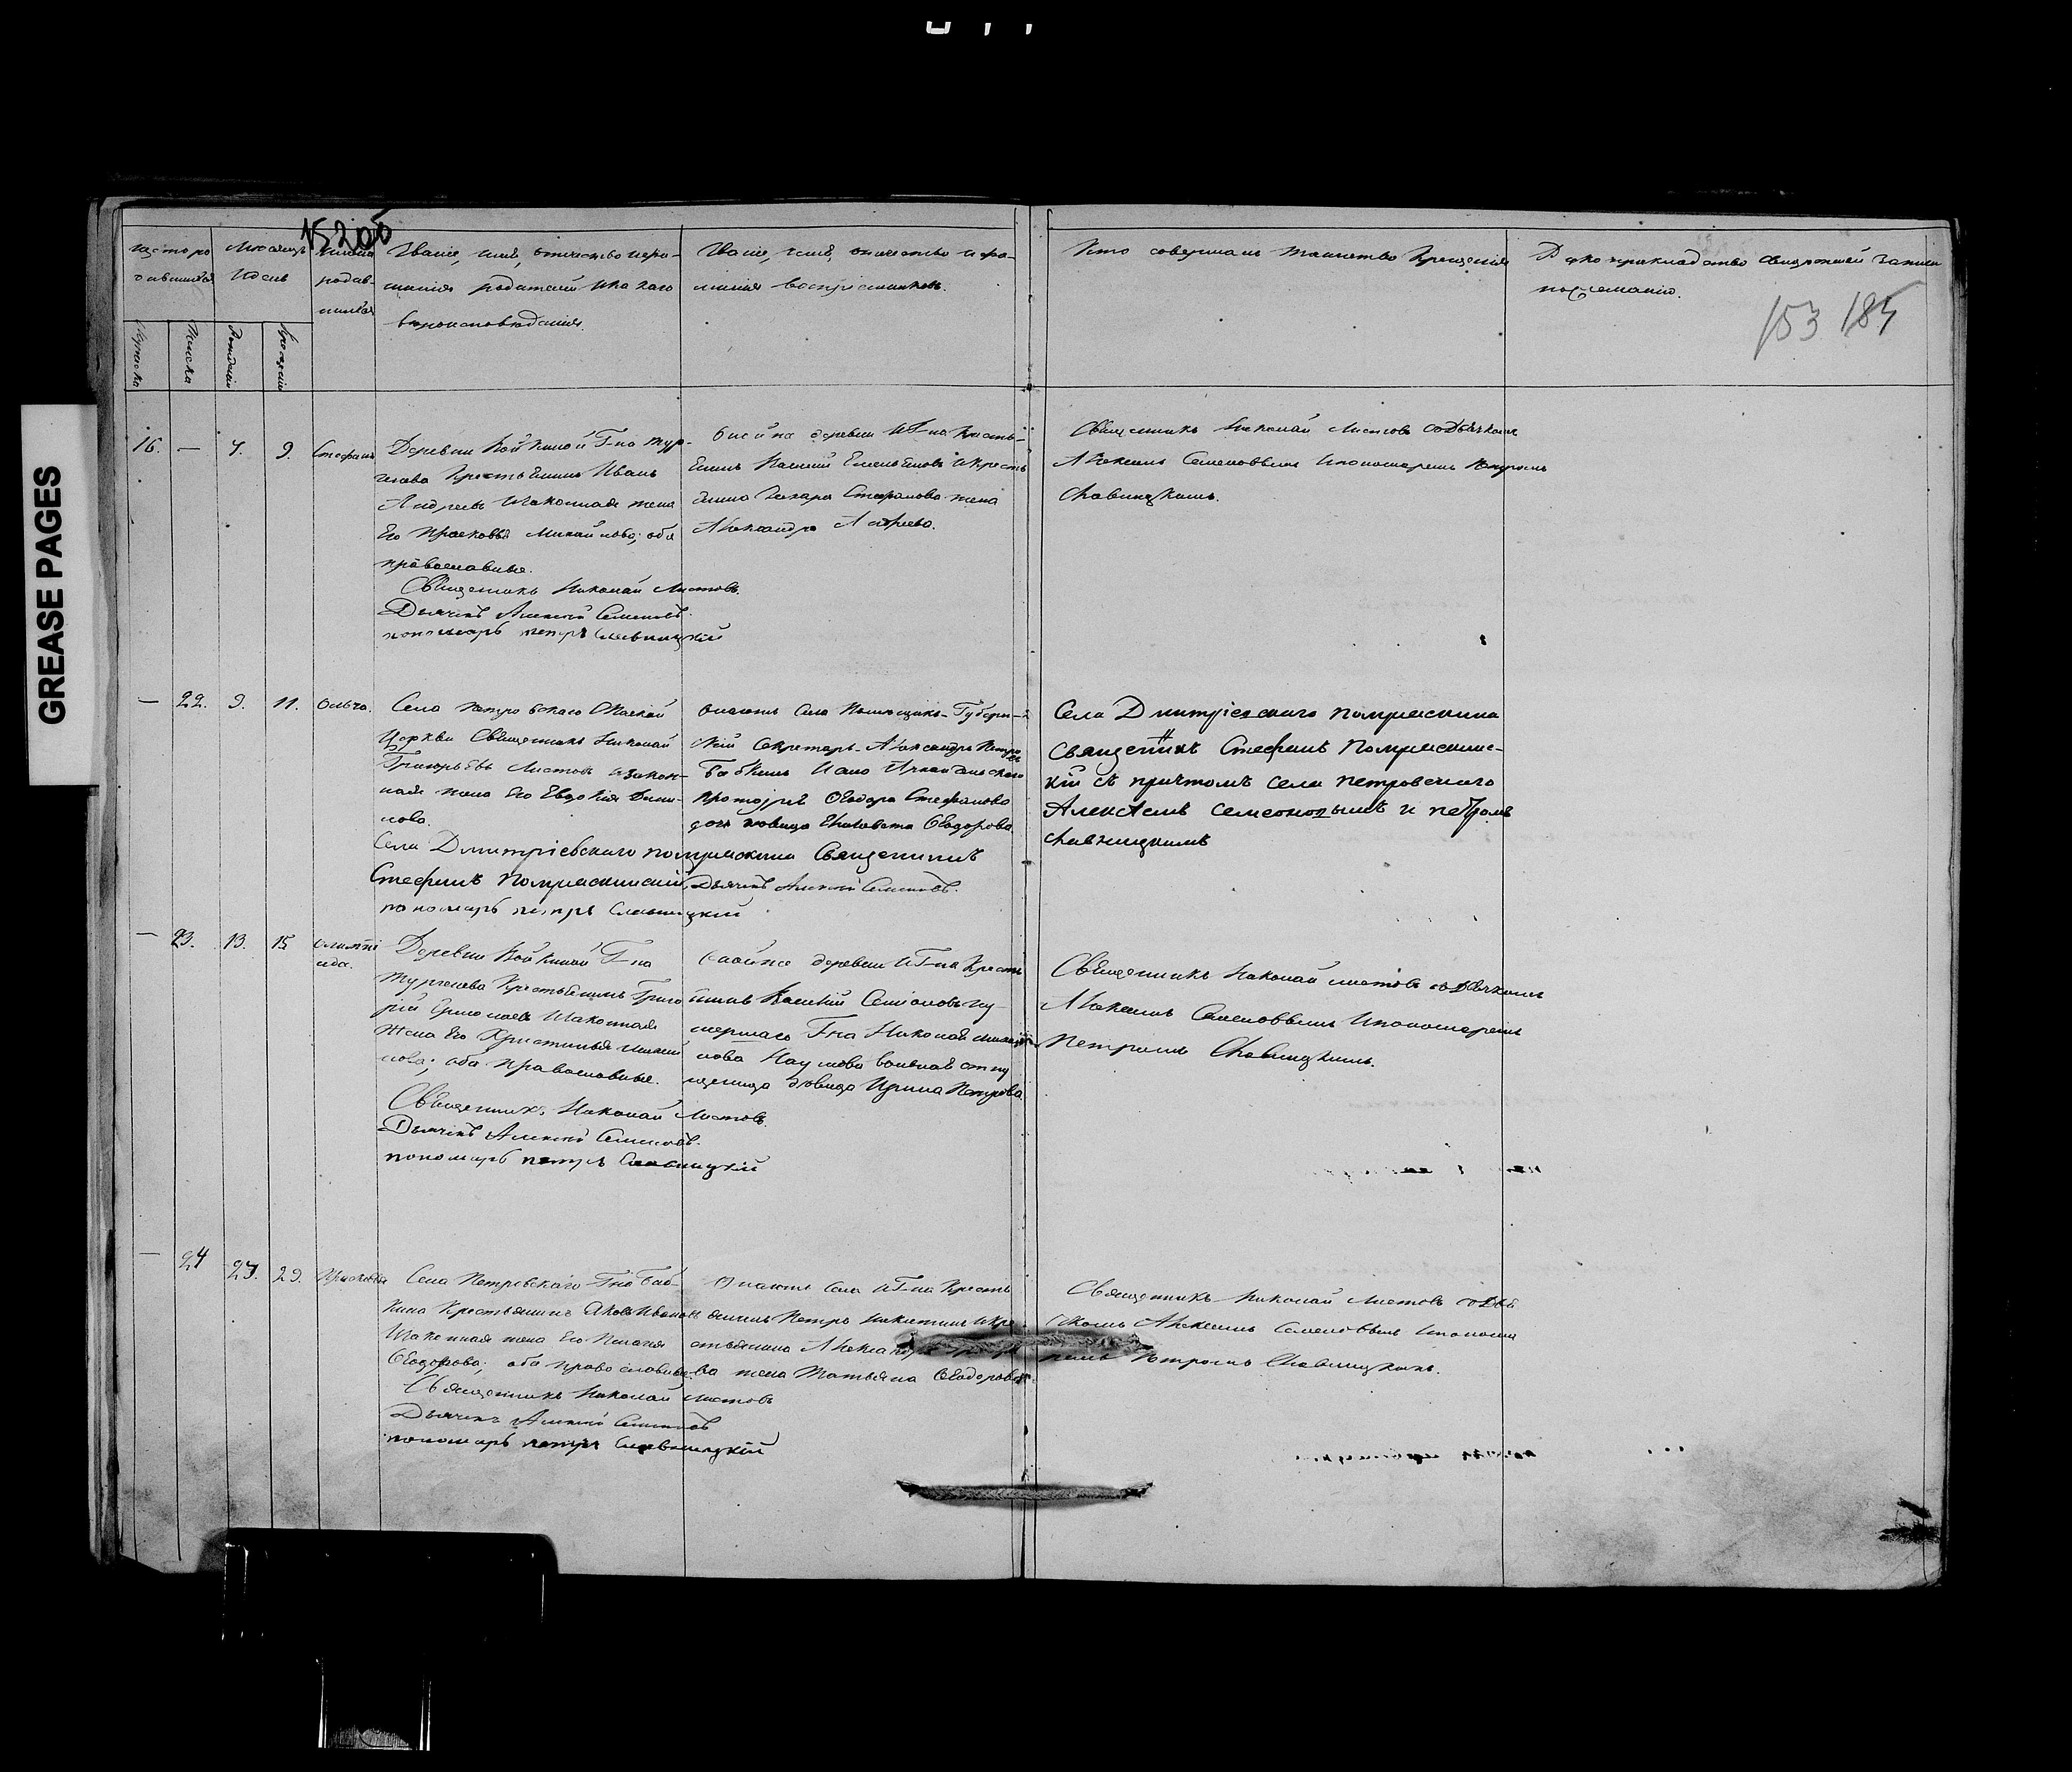 GREASE PAGES
153 185
Счетъ родившихся
Мѣсяцъ и день
Имена родившихся
Званіе, имя, отчество и фамилія родителей и какого вѣроисповѣданія.
Званіе, имя, отчество и фамилія воспріемниковъ.
Кто совершалъ таинство крещенія
Рукоприкладство свидѣтелей записи по желанію.
Мужеска
Женска
Рожденія
Крещенія
16. — 7. 9. Стефанъ
Деревни Войкиной Г-на Тур-
генева Крестьянинъ Иванъ
Андреевъ и законная жена
его Прасковья Михайлова; оба
православные.
Священникъ Николай Листовъ.
Дьячекъ Алексѣй Семеновъ.
пономарь петръ Славницкій
Той же деревни и Г-на Кресть-
янинъ Василій Емельяновъ и кресть
янина Захара Стефанова жена
Александра Андреева.
Священникъ Николай Листовъ со Дьячкомъ
Алексѣемъ Семеновымъ и пономаремъ Петромъ
Славницкимъ.
— 22. 9. 11. Ольга.
Села Петровскаго
Церкви Священникъ Николай
Григорьевъ Листовъ и закон-
ная жена его Евдокія
Села Дмитріевскаго Священникъ
Стефанъ
Дьячекъ Алексѣй Семеновъ.
пономарь петръ Славницкій
Онаго Села Помѣщикъ Губерн-
скій Секретарь Александръ Петровъ
Бабкинъ и
Протоіерея Ѳеодора Стефанова
дочь девица Елизавета Ѳеодорова.
Села Дмитріевскаго
священникъ Стефанъ
кій съ причтомъ села петровского
Алексѣемъ Семеновымъ и петромъ
Славницкимъ
— 23. 13. 15
Деревни Войкиной Г-на
Тургенева Крестьянинъ Григо
рій и законная
жена его Христинья
оба православные.
Священникъ Николай Листовъ.
Дьячекъ Алексѣй Семеновъ.
пономарь петръ Славницкій
Той же деревни и Г-на Кресть
янинъ Василій и у
мершаго Г-на Николая
Наумова вольноотпу
щенница дѣвица Ирина Петрова
Священникъ Николай листовъ со Дьячкомъ
Алексѣемъ Семеновымъ и пономаремъ
Петромъ Славницкимъ.
— 24 27. 29. Прасковья
Села Петровскаго Г-на Баб-
кина Крестьянинъ Яковъ Ивановъ
и законная жена его Пелагія
Ѳеодорова; оба православные
Священникъ Николай Листовъ
Дьячекъ Алексѣй Семеновъ
пономарь петръ Славницкій
Онаго Села и Г-на Кресть
янинъ Петръ Никитинъ и кре
стьянина Александра
ва жена Татьяна Ѳеодорова.
Священникъ Николай Листовъ со Дья
чкомъ Алексѣемъ Семеновымъ и понома
ремъ Петромъ Славницкимъ.